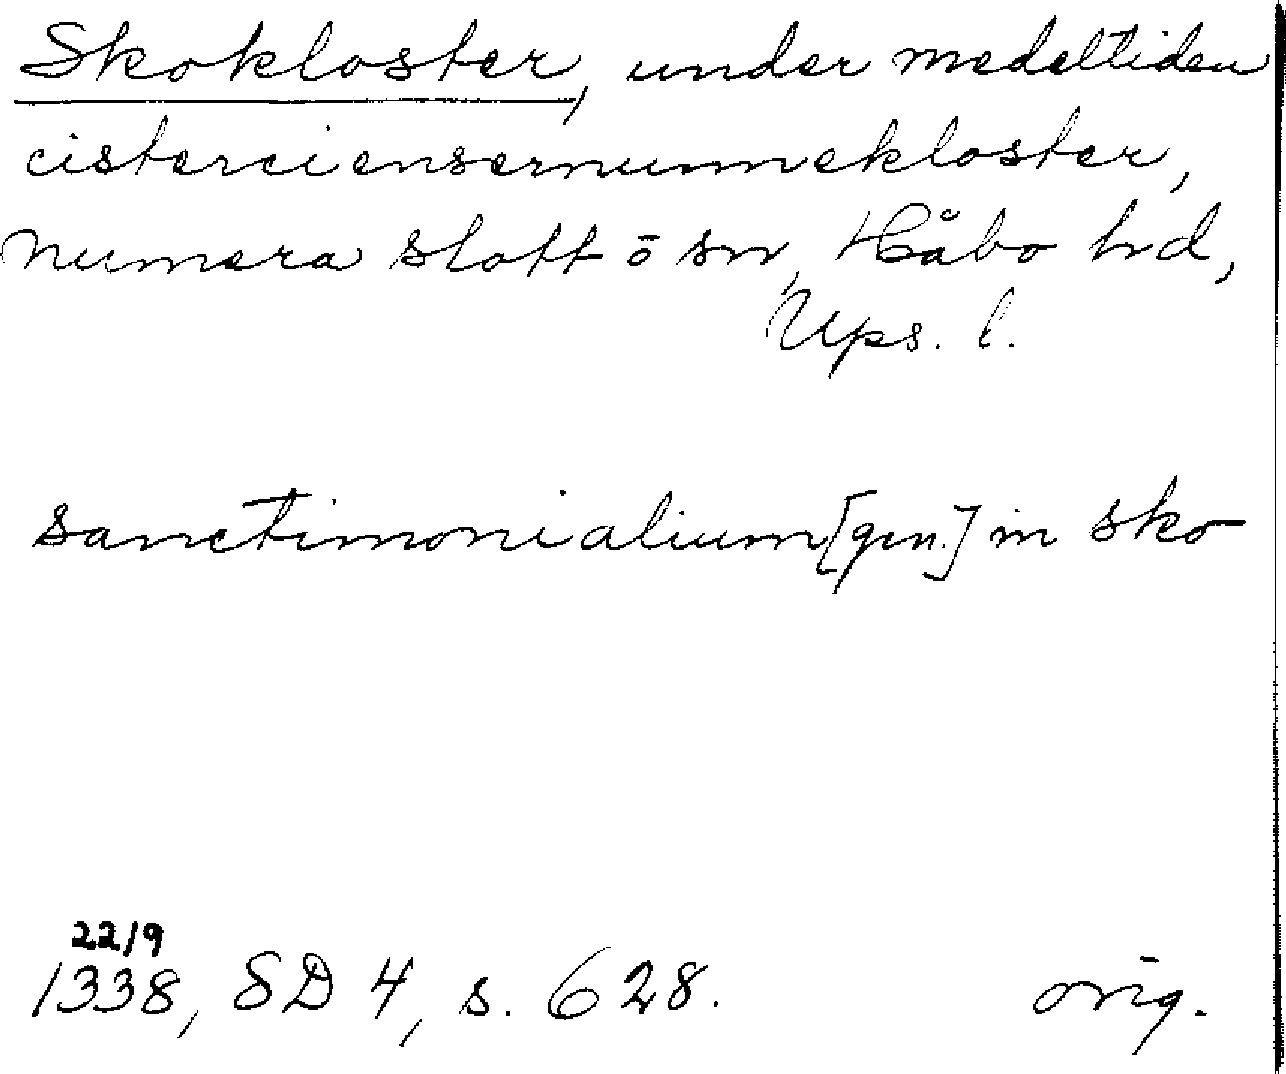 Skokloster, under medeltiden
cisterciensernunnekloster,
numera slott o sn, Håbo hd,
Ups. l.
sanctimonialium [gen.] in sko
22/9
1338, SD 4, s. 628. orig.